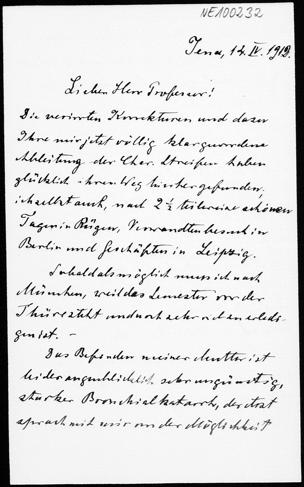 NE100232
Jena, 14. IV. 1912.
Lieber Herr Professor!
Die verirrten Korrekturen und dazu
Ihre mir jetzt völlig klargewordene
Ableitung der Char. Streifen haben
glücklich ihren Weg hierher gefunden.
ich selbst auch, nach 2 ½ teilweise schönen
Tagen in Rügen, Verwandtenbesuch in
Berlin und Geschäften in Leipzig.
Sobald als möglich muss ich nach
München, weil das Semester vor der
Thüre steht und noch sehr viel zu erledi-
gen ist. –
Das Befinden meiner Mutter ist
leider augenblicklich sehr ungünstig,
starker Bronchialkatarrh, der Arzt
sprach mit mir von der Möglichkeit